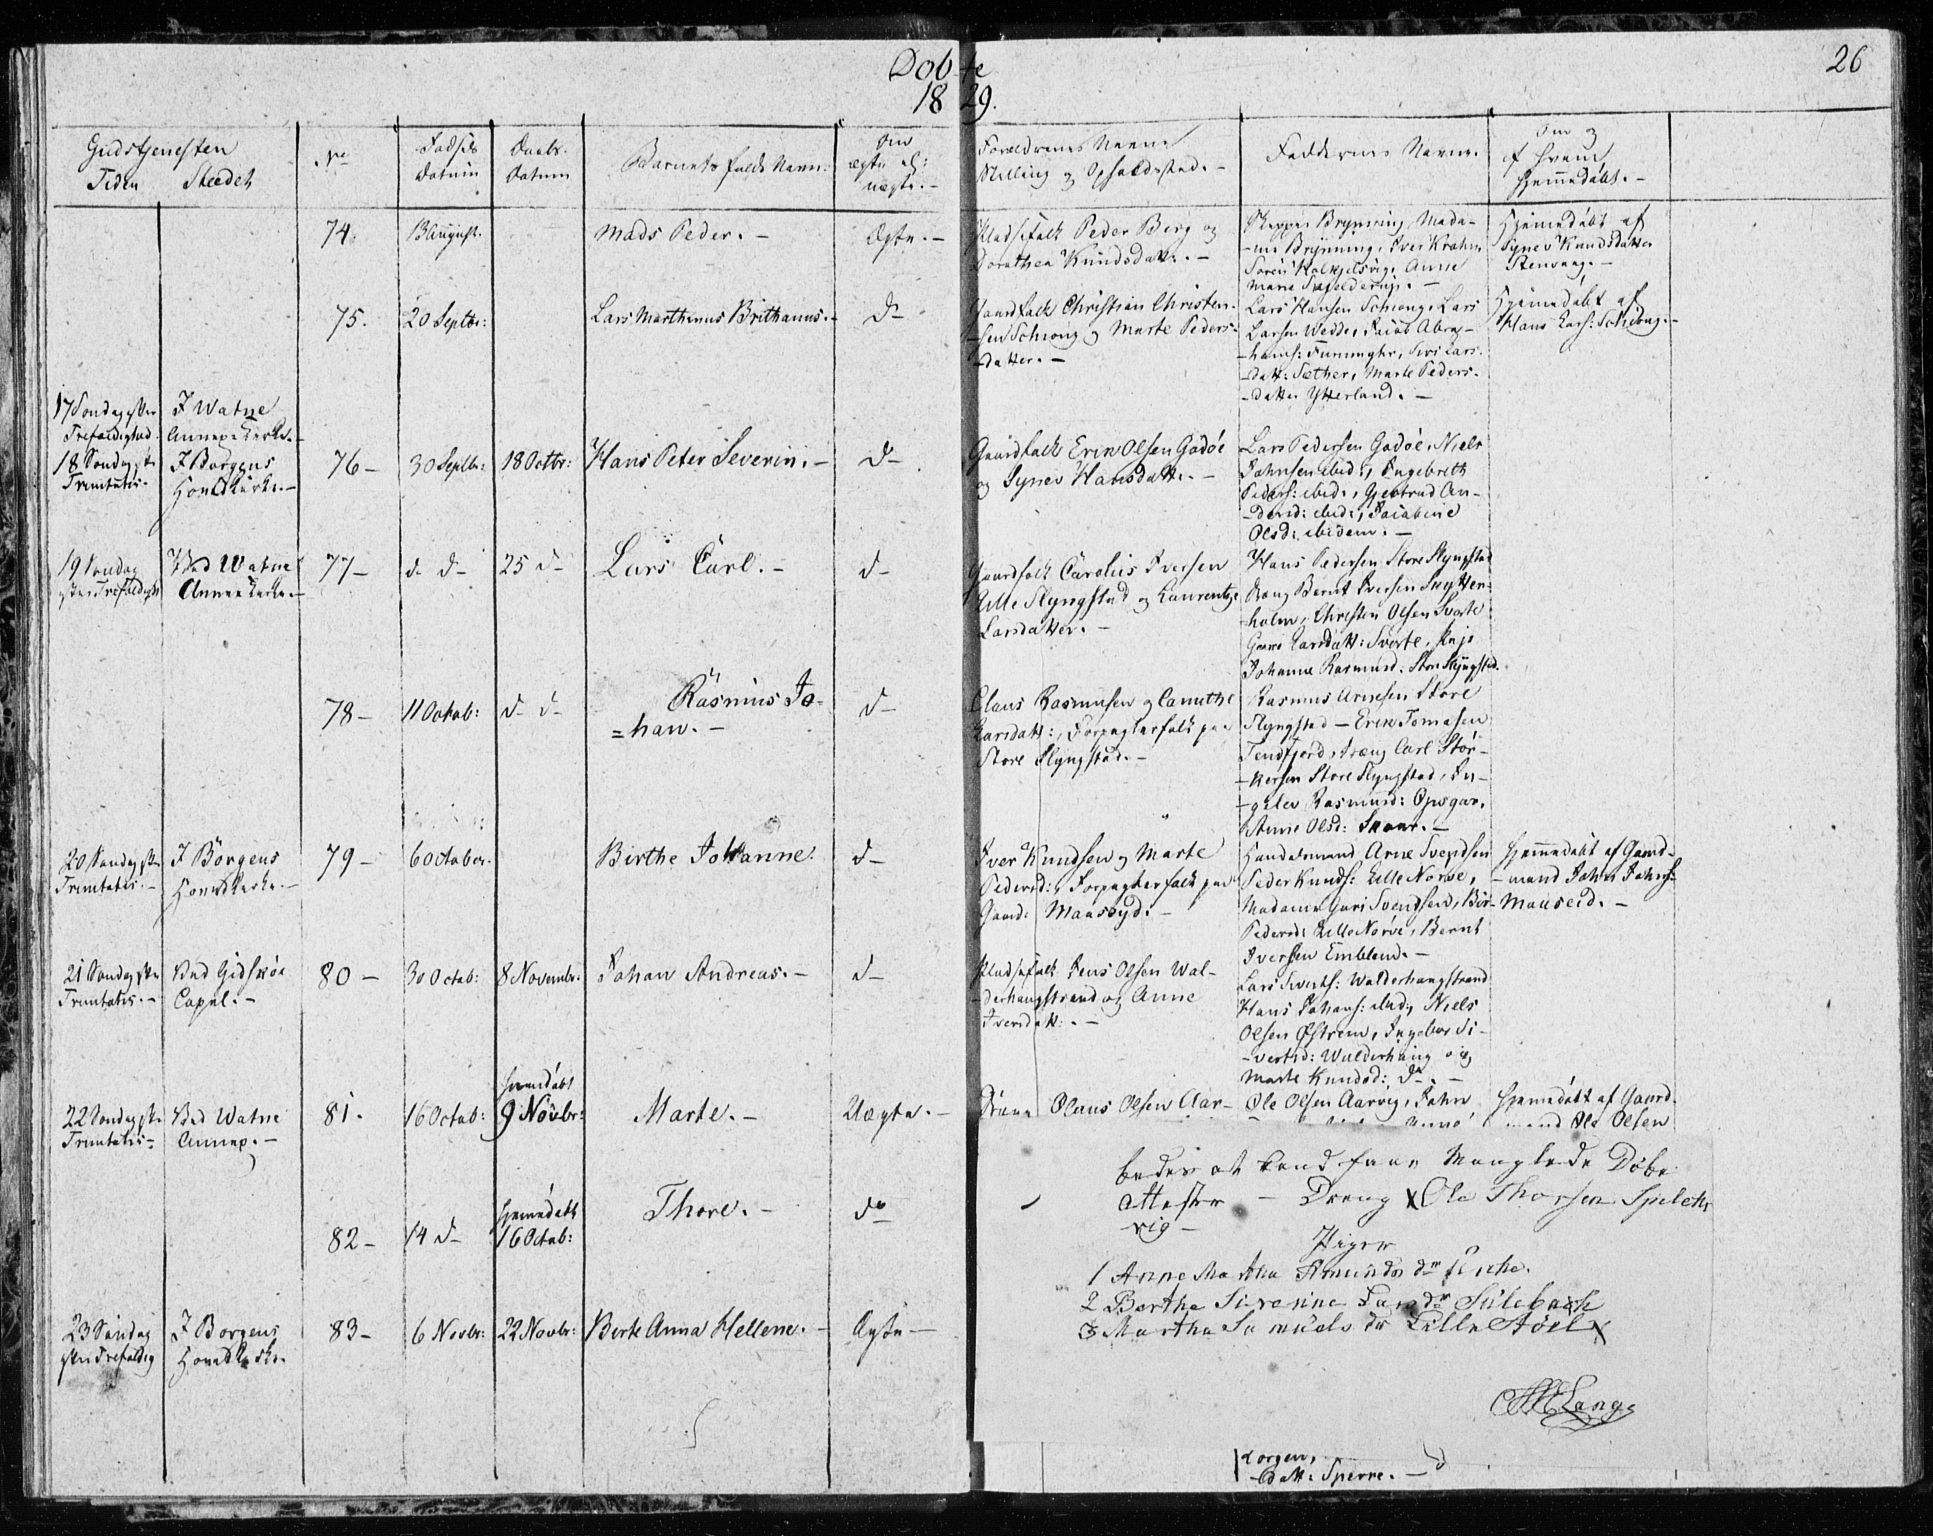 Døbte
1829.
26
Gudstjenesten
Tiden Stædet
No
Fødsels
Datum
Daabs-
Datum
Barnets fulde Navn.
Om
ægte el:
uægte.-
Forældrenes Navne
Stilling og Opholdssted.-
Faddernes Navne.
Om og
af hvem
hjemmedøbt.-
74.
13 August.
Mads Peder.-
Ægte.-
Pladsfolk Peder Berg og
Dorothea Knudsdatt:.-
Skipper Brynning, Mada-
-me Brynning, Iver Krohn
Søren
Anne
Marie
Hjemmedøbt af
Synev Knudsdatter
Stenvaag.-
75.
20 Septbr:
Lars Marthinus Brithanus.-
d-
Gaardfolk Christian Christen-
-sen Schiong og Marte Peders-
-datter.-
Lars Hansen Schiong, Lars
Larsen Wedde, Jacob Abra-
-hams: Siri Lars-
-datt: Sæther, Marte Peders-
-datter Ytterland.-
Hjemmedøbt af
Hans Lars: Schiong.-
17 Søndag efter
Trefoldighed.
I Watne
Annex Kirke.-
18 Søndag efter
Trinitatis.-
I Borgens
Hovedkirke.-
76-
30 Septbr:
18 Octbr:
Hans Peter Severin.-
d-
Gaardfolk Erik Olsen Godøe
og Synev Hansdatt:.-
Lars Pedersen Godøe, Niels
Johnsen ibid:, Ingebreth
Peders: ibid:, Gjertrud An-
-dersd: ibid:, Jacobine
Olsd: ibidem.-
19 Søndag
efter Trefoldigh
Ved Watne
Annex Kirke.-
77-
d- d-
25 d-
Lars Carl.-
d-
Gaardfolk Carolus Iversen
Lille Slyngstad og Laurentze
Larsdatter.-
Hans Pedersen Store Slyngstad
Dreng Bernt Iversen Skytten-
-holm, Christen Olsen Svorte
Larsdatt: Svorte, Pige
Johanne Rasmusd: Store Slyngstad.
78-
11 Octob:
d- d-
Rasmus Jo-
=han.-
d-
Claus Rasmusen og Canuthe
Larsdatt:, Forpagterfolk paa
Store Slyngstad.-
Rasmus Arnesen Store
Slyngstad - Erik Tomasen
Tendfjord, Dreng Carl Stor-
-kersen Store Slyngstad, In-
-geler Rasmusd: Opsgar,
Anne Olsd: Skaar.-
20 Søndag efter
Trinitatis.-
I Borgens
Hovedkirke.-
79-
6 October.
Birthe Johanne.
d-
Iver Knudsen og Marte
Pedersd:, Forpagterfolk paa
Gaard: Maaseyd.-
Handelsmand Arne Svendsen
Peder Knuds: Lille Norve,
Madame Guri Svendsen, Bir-
Pedersd: Lille Norve, Bernt
Iversen Emblem.-
Hjemmedøbt af Gaard-
-mand John Johns:
Maaseid.-
21 Søndag efter
Trinitatis.-
Ved Gidskøe
Capel.-
80-
30 Octob:
8 Novembr.
Johan Andreas.-
d-
Pladsefolk Jens Olsen Wal-
-derhaugstrand og Anne
Iversdatt:.-
Lars Siverts: Walderhaugstrand
Hans Johans: ibid:, Niels
Olsen Østrem, Ingebor Si-
-vertsd: Walderhaug og
Marte Knudsd: do.-
22 Søndag efter
Trinitatis.-
Ved Watne
Annex.-
81.
16 Octob:
hjemdøbt
9 Novbr:
Marte.-
Uægte.-
Dreng Olaus Olsen Aar-
Ole Olsen Aarvig, John
Hjemmedøbt af Gaard-
-mand Ole Olsen
82-
14 d-
hjemmedøbt
16 Octob:
Thore.-
do
23 Søndag
efter Trefoldig
I Borgens
Hovedkirke.
83-
6 Novbr:
22 Novbr:
Berte Anna Hellene.-
Ægte-
bedes at Manglede Døbe
Attester - Dreng Ole Thorsen Spilck
vig-
Piger
1 Anne Martha Amunds dr
2 Berthe Sirenne dr Sulebach
3 Martha Samuels dr Lille Støel
Lange
-datt: Sperre.-